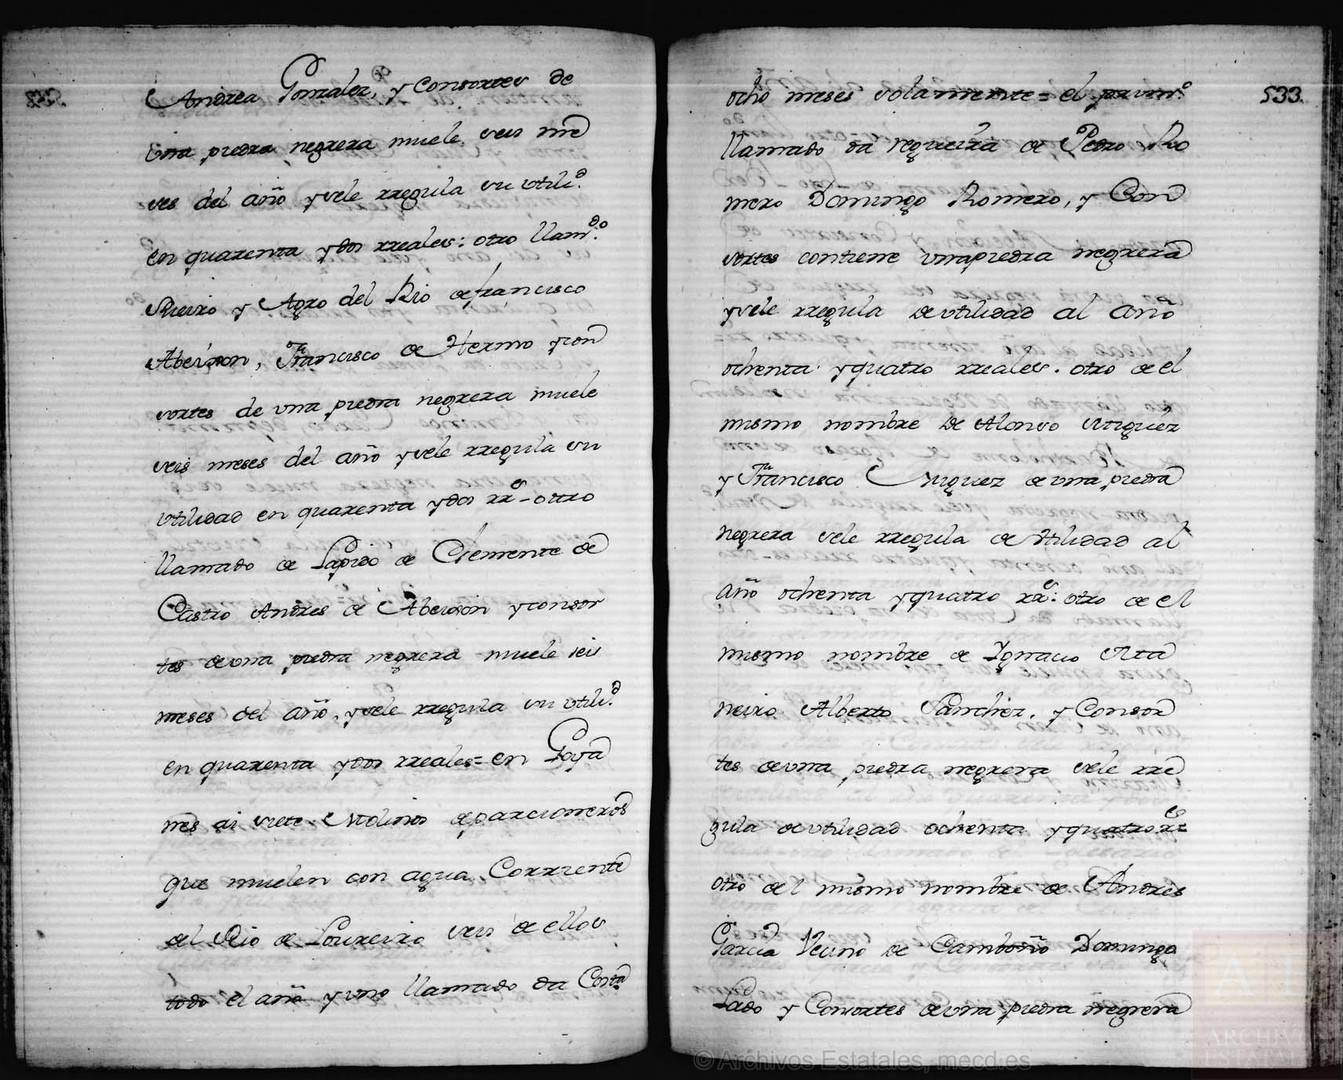 Andrea Gonzalez, y consortes de
una piedra negrera muele seis me
ses del año y sele rregula su utili.d
en quarenta y dos rreales: otro llam.do
Rueiro y Agro del Rio de francisco
Abeijon, Francisco de Hermo y con
sortes de una piedra negrera muele
seis meses del año y sele rregula su
utilidad en quarenta y dos rr.s otro
llamado de Lapido de Clemente de
Castro Andres de Abeijon y consor
tes de una piedra negrera muele seis
meses del año, y sele rregula su utili.d
en quarenta y dos rreales = en Goya
nes ai siete Molinos de parcioneros
que muelen con agua Corriente
del Rio de Loureiro seis de ellos
todo el año y uno llamado da Costa
533.
ocho meses solamente = el prim.o
llamado da regueira de Pedro Ro
mero Domingo Romero, y Con
sortes contiene una piedra negrera
y sele rregula de utilidad al año
ochenta y quatro rreales. otro de el
mismo nombre de Alonso
y Francisco de una piedra
negrera sele rregula de Utilidad al
año ochenta y quatro rr.s: otro de el
mismo nombre de Ignacio
Alberto Sanchez, y Consor
tes de una piedra negrera sele rre
gula de utilidad ochenta y quatro rr.s =
otro del mismo nombre de Andres
Garcia Vecino de Camboño Domingo
Lado y Consortes de una piedra negrera
© Archivos Estatales, mecd.es
ARCHIVOS
ESTATALES